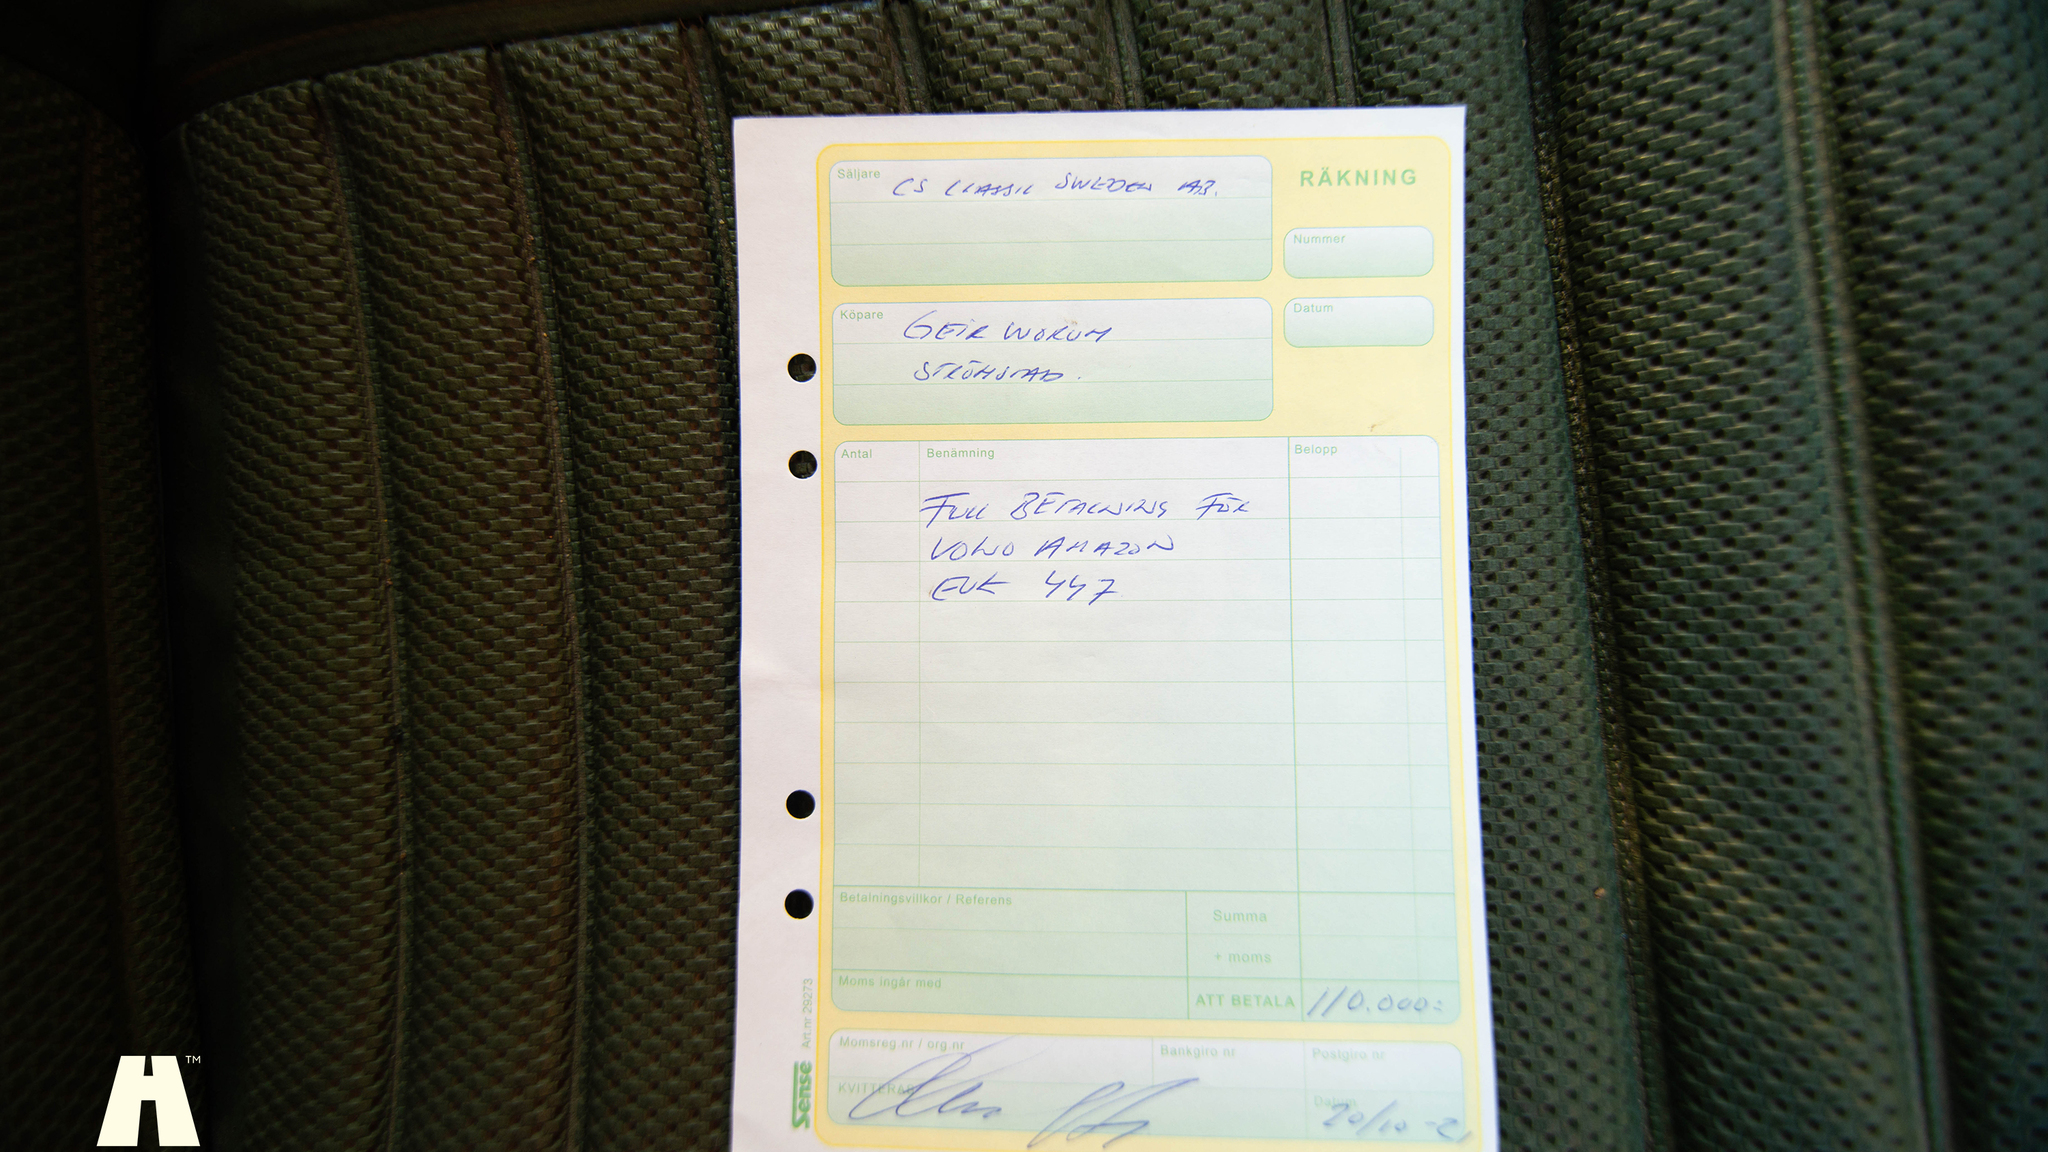 RÄKNING
Säljare
CS CLASSIC SWEDEN AB.
Nummer
Köpare
GEIR WORUM
STRÖMSTAD.
Datum
Antal Benämning Belopp
FULL BETALNING FÖR
VOLVO AMAZON
EUK 447
Betalningsvillkor / Referens
Summa
+ moms
Moms ingår med
ATT BETALA 110.000:
Momsreg.nr / org.nr Bankgiro nr Postgiro nr
KVITTERAS
Datum
20/10-21
Sense Art.nr 29273
H™